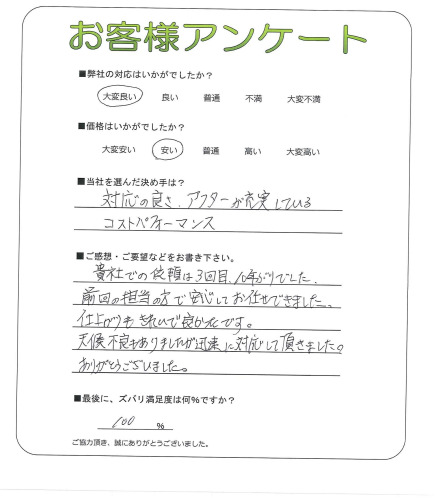 お客様アンケート
■弊社の対応はいかがでしたか?
大変良い 良い 普通 不満 大変不満
■価格はいかがでしたか?
大変安い 安い 普通 高い 大変高い
■当社を選んだ決め手は?
対応の良さ、アフターが充実している
コストパフォーマンス
■ご感想・ご要望などをお書き下さい。
貴社での依頼は3回目、10年ぶりでした.
前回の担当の方で安心してお任せできました、
仕上がりもきれいで良かったです。
天候不良もありましたが迅速に対応して頂きました。
ありがとうございました。
■最後に、ズバリ満足度は何%ですか?
100 %
ご協力頂き、誠にありがとうございました。